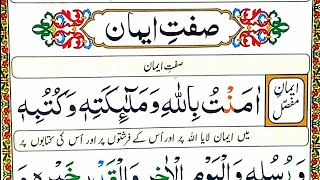 صفتِ ایمان
صفتِ ایمان
ایمانِ مفصّل
اٰمَنْتُ بِاللّٰهِ وَمَلٰٓئِكَتِهٖ وَكُتُبِهٖ
میں ایمان لایا اللہ پر اور اُس کے فرشتوں پر اور اُس کی کتابوں پر
وَرُسُلِهٖ وَالْيَوْمِ الْاٰخِرِ وَالْقَدْرِ خَيْرِهٖ وَ